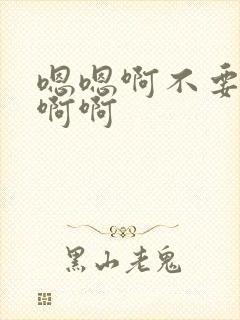 嗯嗯啊不要
啊啊
黑山老鬼